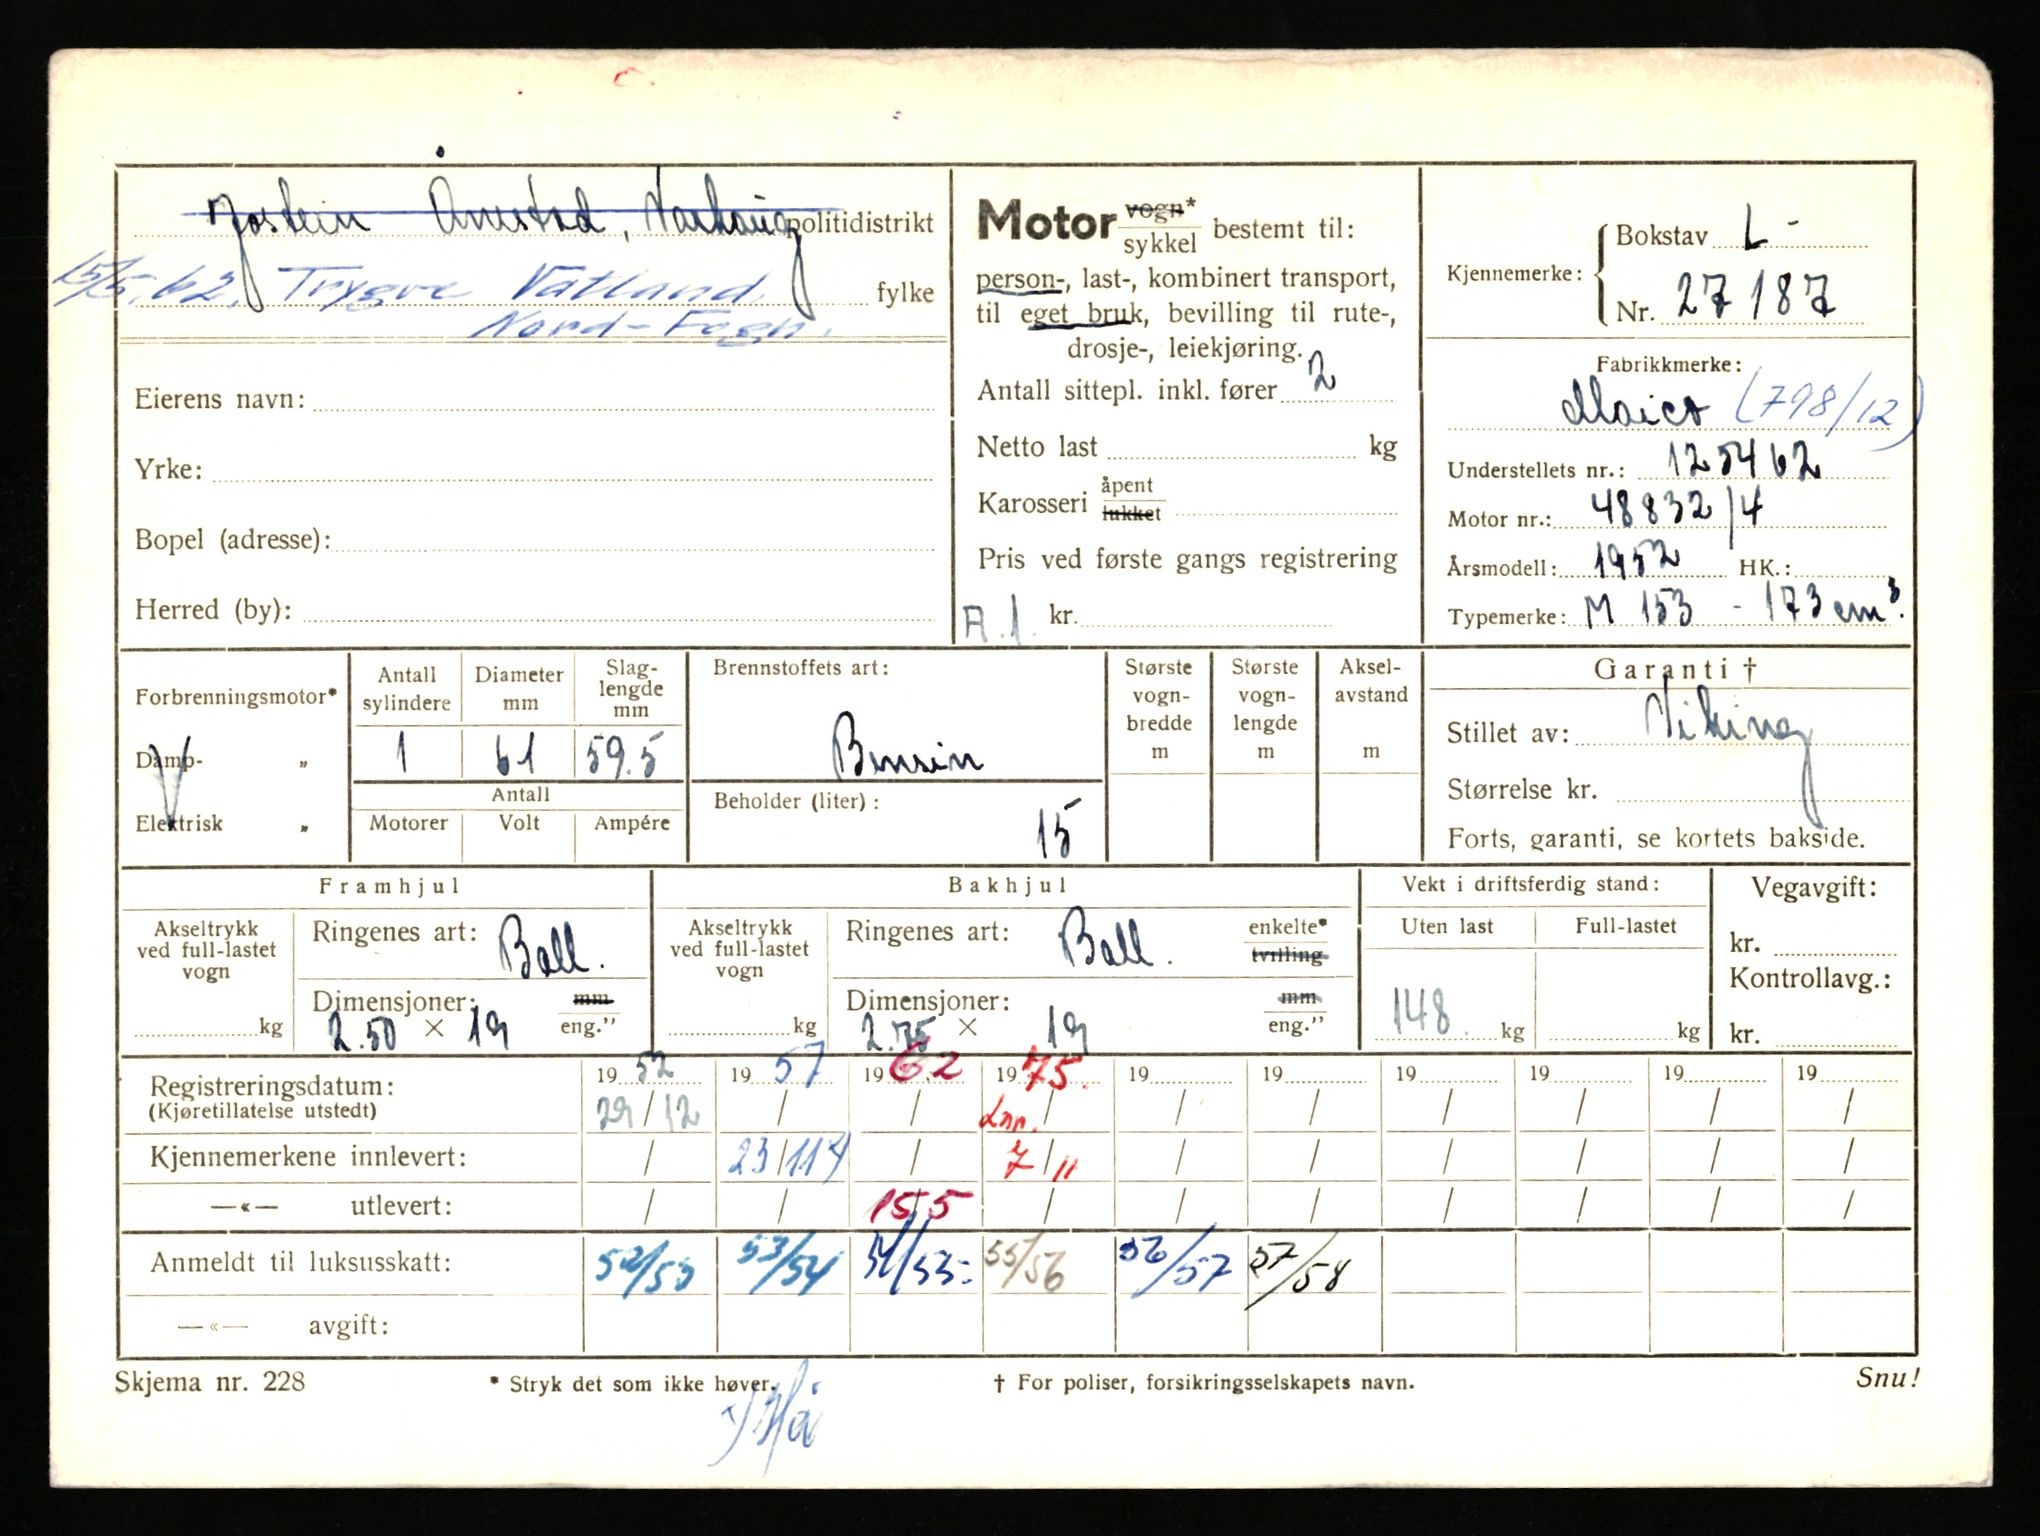 Jostein Ånestad, Varhaug politidistrikt
15/5.62. Trygve Vatland. fylke
Nord-Fogn.
Eierens navn:
Yrke:
Bopel (adresse):
Herred (by):
Motor vogn* sykkel bestemt til:
person-, last-, kombinert transport,
til eget bruk, bevilling til rute-,
drosje-, leiekjøring.
Antall sittepl. inkl. fører 2
Netto last kg
Karosseri åpent lukket
Pris ved første gangs registrering
A.1. kr.
Kjennemerke: Bokstav L-
Nr. 27187
Fabrikkmerke:
Maico (798/12)
Understellets nr.: 125462
Motor nr.: 48832/4
Årsmodell: 1952 HK.:
Typemerke: M 153 - 173 cm³.
Forbrenningsmotor*
Damp- „
Elektrisk „
Antall sylindere Diameter mm Slag-lengde mm
1 61 59.5
Antall
Motorer Volt Ampére
Brennstoffets art:
Bensin
Beholder (liter):
15
Største vogn-bredde m
Største vogn-lengde m
Aksel-avstand m
Garanti †
Stillet av: Viking
Størrelse kr.
Forts, garanti, se kortets bakside.
Framhjul
Akseltrykk ved full-lastet vogn
kg
Ringenes art: Ball.
Dimensjoner: mm
2.50 × 19 eng.”
Bakhjul
Akseltrykk ved full-lastet vogn
kg
Ringenes art: Ball. enkelte* tvilling
Dimensjoner: mm
2.75 × 19 eng.”
Vekt i driftsferdig stand:
Uten last Full-lastet
148 kg kg
Vegavgift:
kr.
Kontrollavg.:
kr.
Registreringsdatum: 19 52 19 57 19 62 19 75. 19 19 19 19 19 19
(Kjøretillatelse utstedt) 29/12 / / / / / / / / /
Kjennemerkene innlevert: / 23/11 / 7/11 / / / / / /
—«— utlevert: / / 15/5 / / / / / / /
Anmeldt til luksusskatt: 52/53 53/54 54/55- 55/56 56/57 57/58
—«— avgift:
Skjema nr. 228 * Stryk det som ikke høver. † For poliser, forsikringsselskapets navn. Snu!